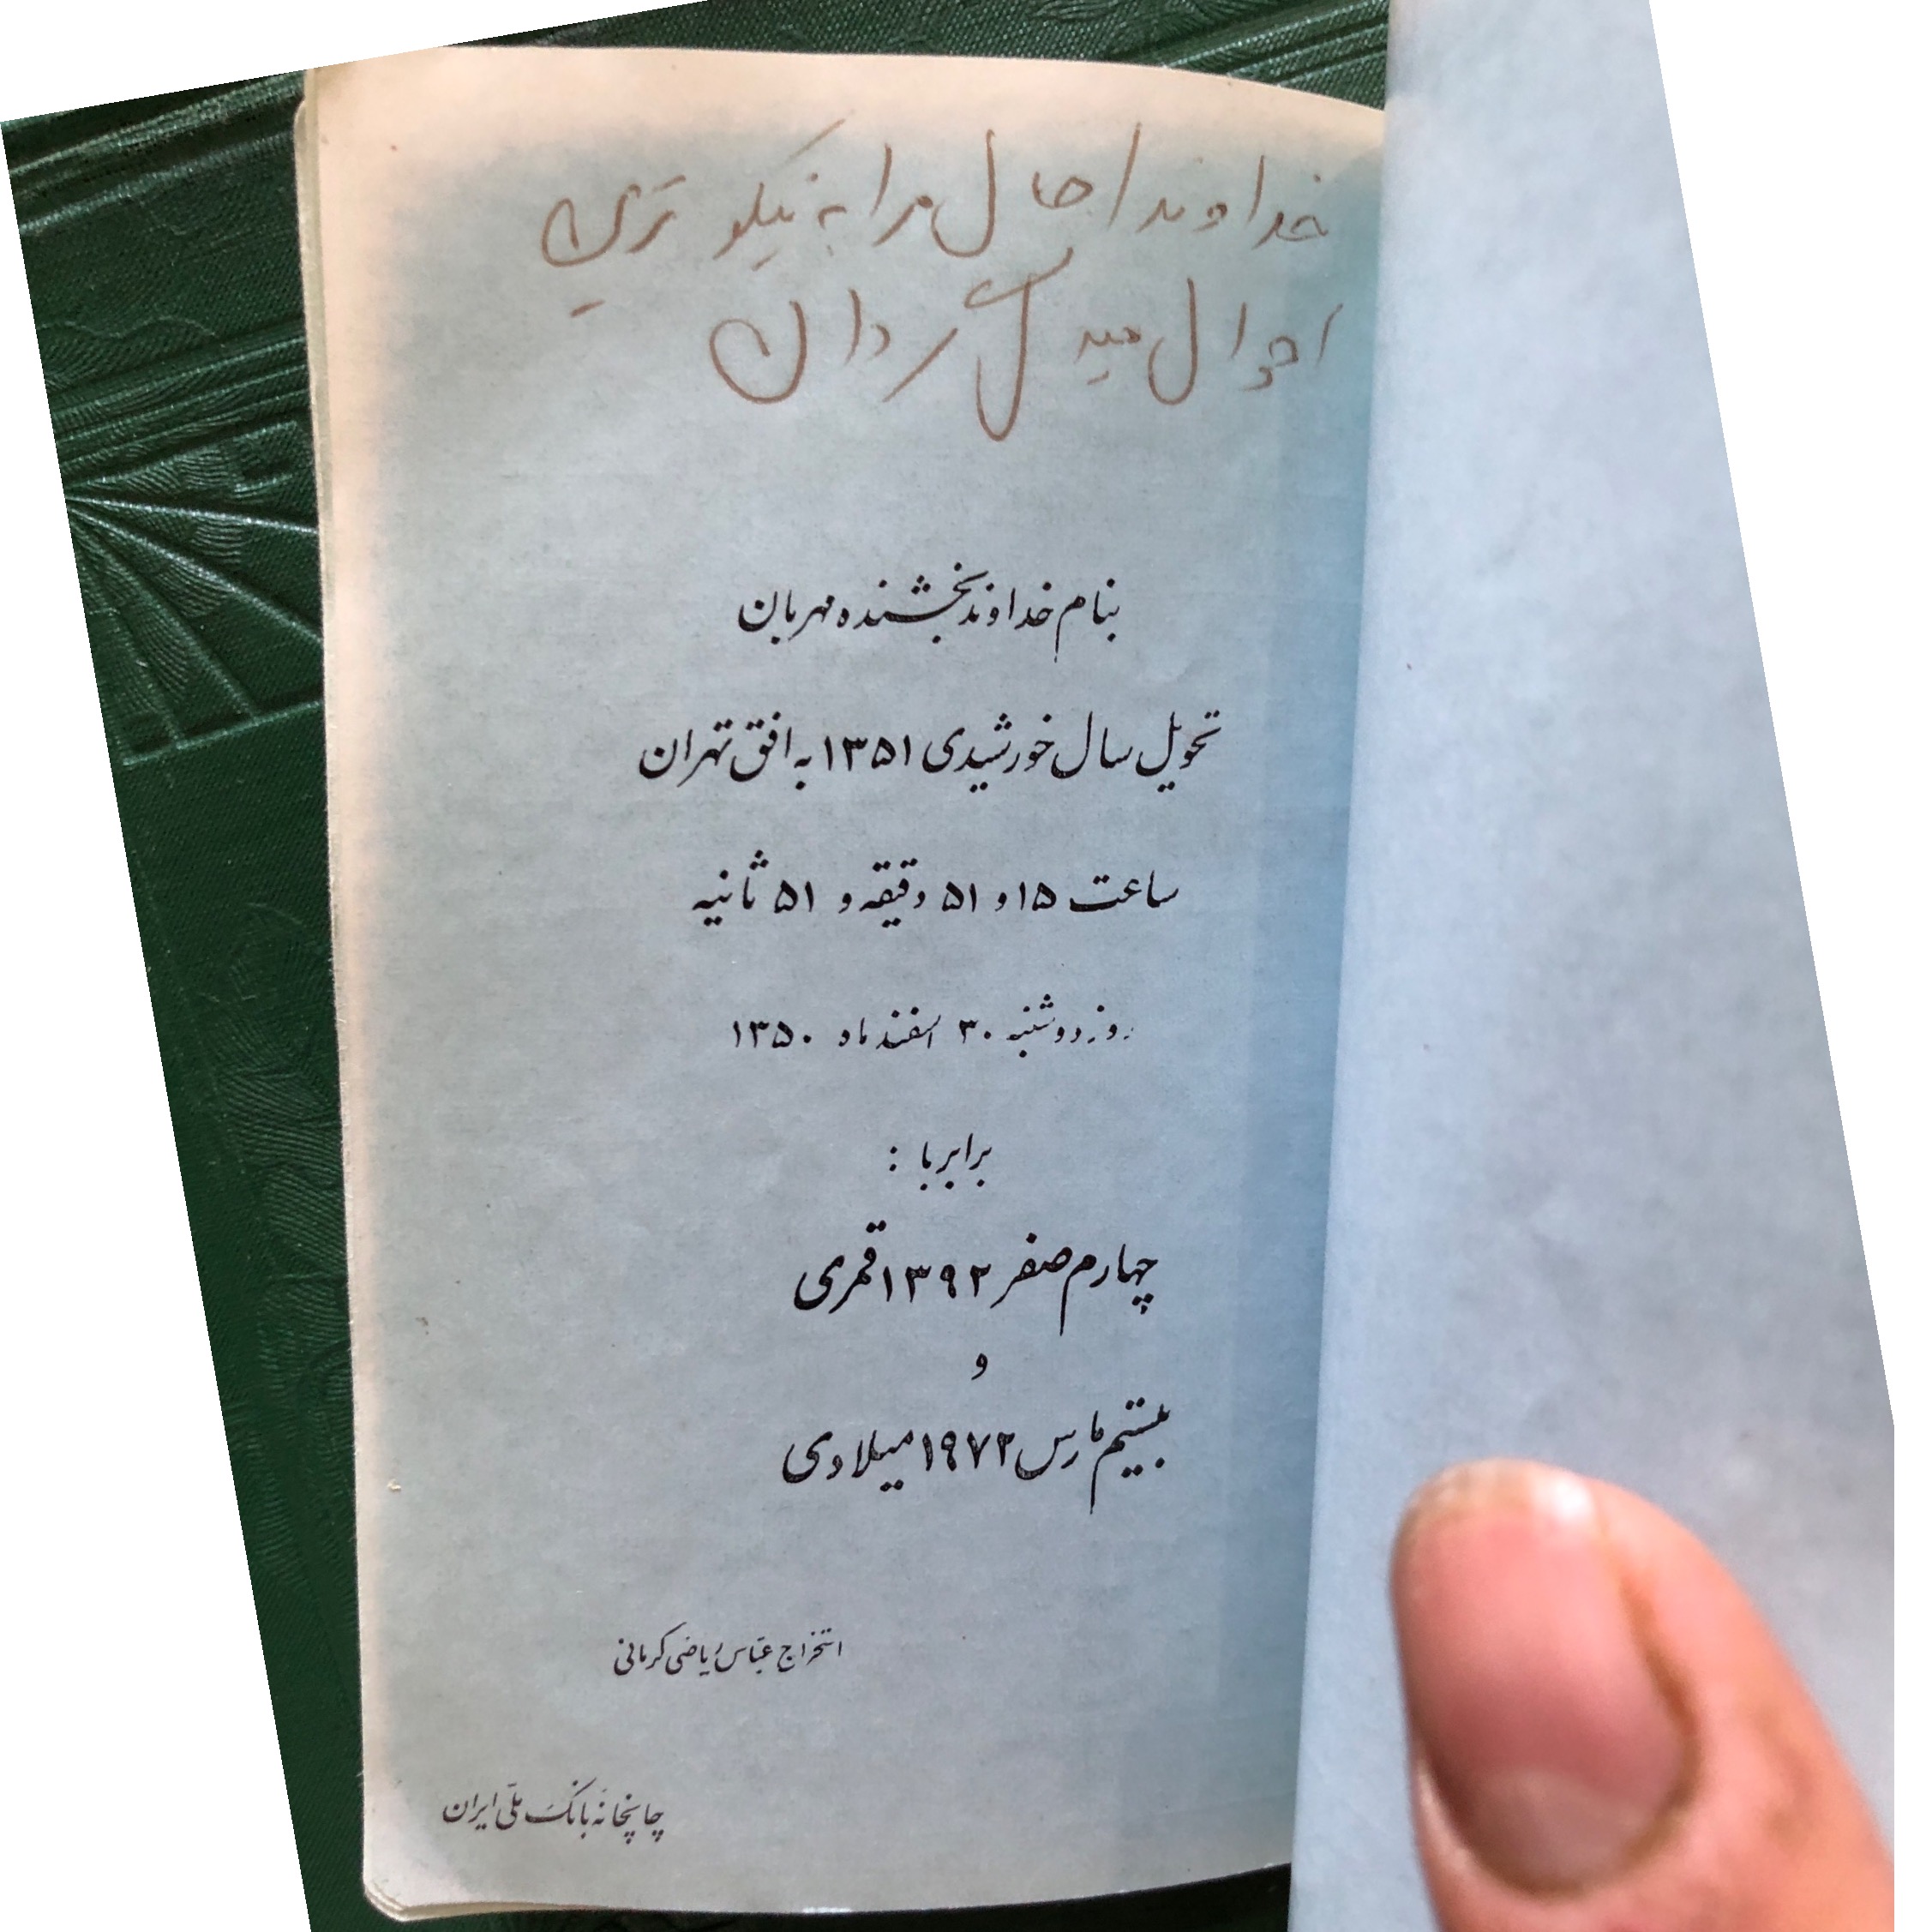 خداوندا حال مرا به نیکو ترین
احوال مبدل گردان
بنام خداوند بخشنده مهربان
تحویل سال خورشیدی ۱۳۵۱ به افق تهران
ساعت ۱۵ و ۵۱ دقیقه و ۵۱ ثانیه
روز دوشنبه ۳۰ اسفند ماه ۱۳۵۰
برابر با :
چهارم صفر ۱۳۹۲ قمری
و
بیستم مارس ۱۹۷۲ میلادی
استخراج عبّاس ریاضی کرمانی
چاپخانهٔ بانک ملّی ایران